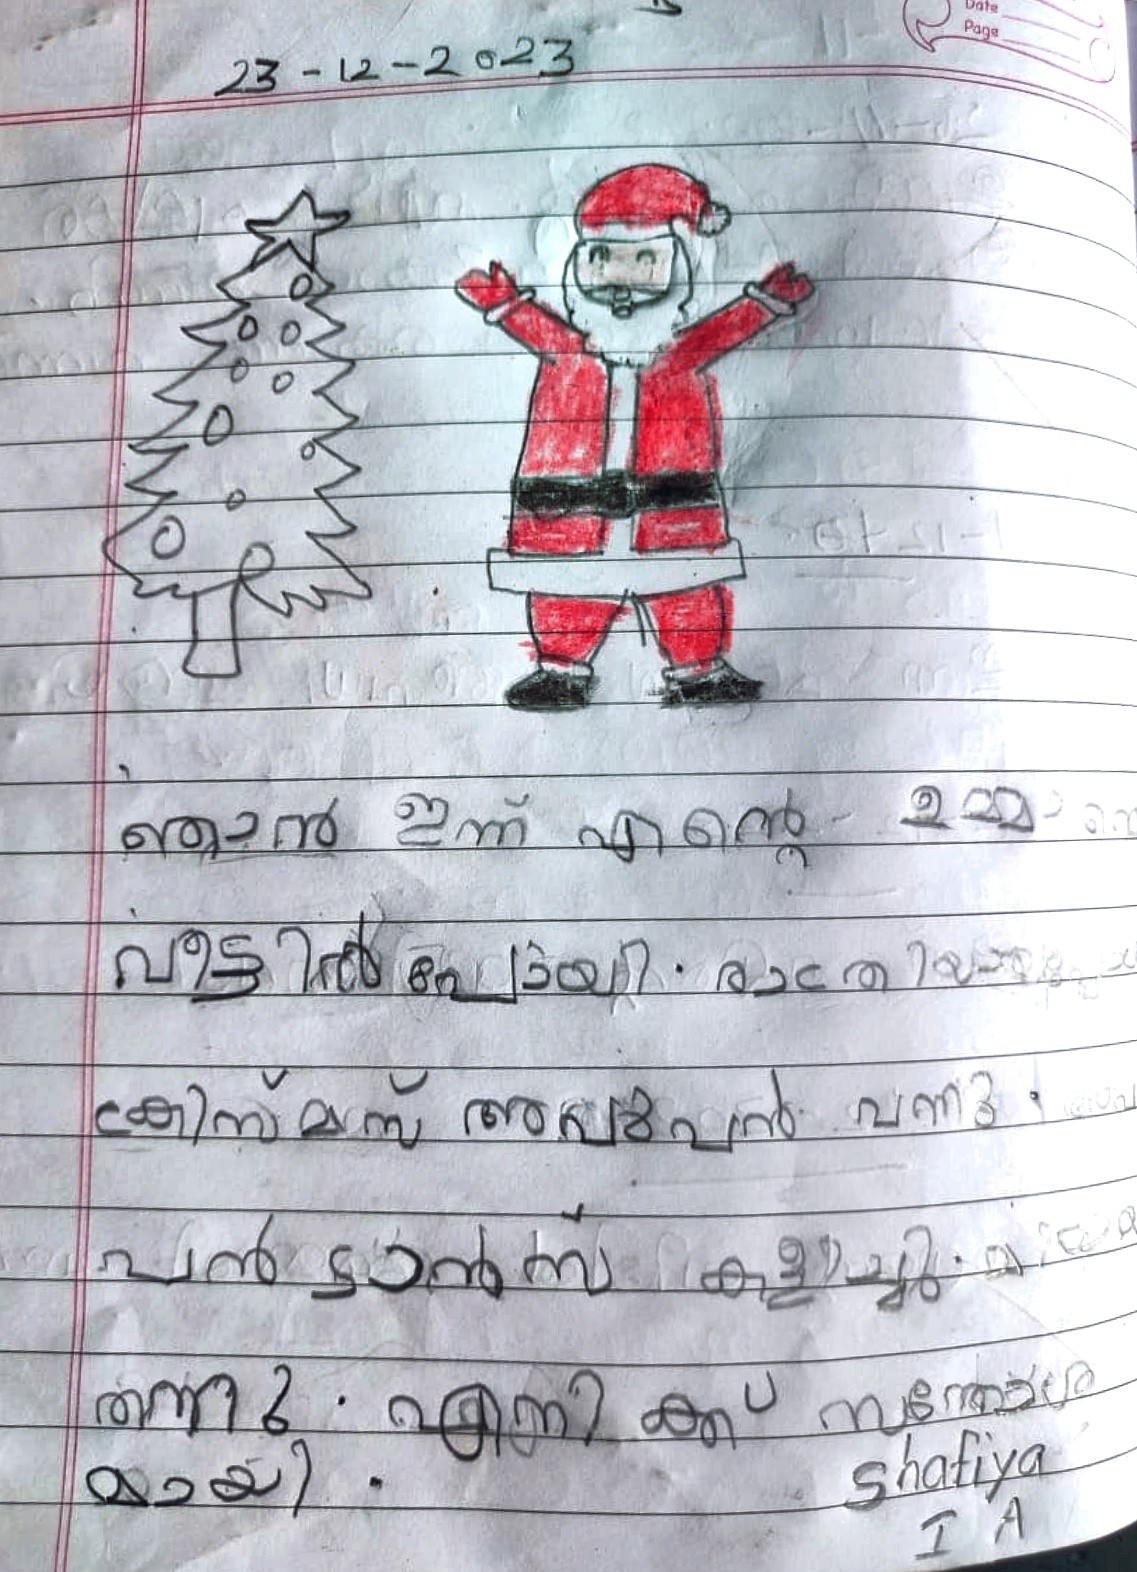 Date
Page
23-12-2023
ഞാൻ ഇന്ന് എന്റെ ഉമ്മാ
വീട്ടിൽ പോയി. രാത്രി
ക്രിസ്മസ് അപ്പുപ്പൻ വന്നു.
പ്പൻ ടാൻസ് കളിച്ചു.
തന്നു. എനിക്ക് സന്തോശ
മായി.
Shafiya
I A